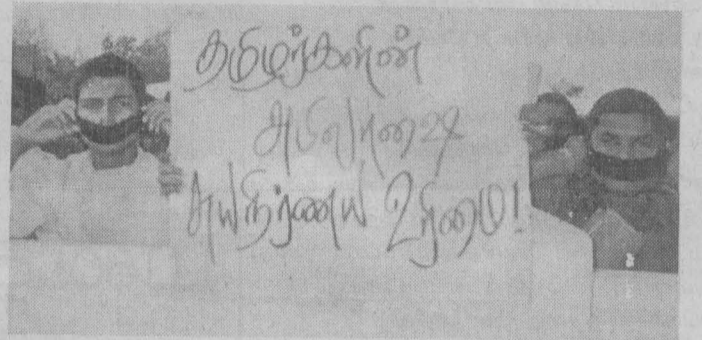 தமிழர்களின்
அபிலாஷை
சுயநிர்ணய உரிமை!